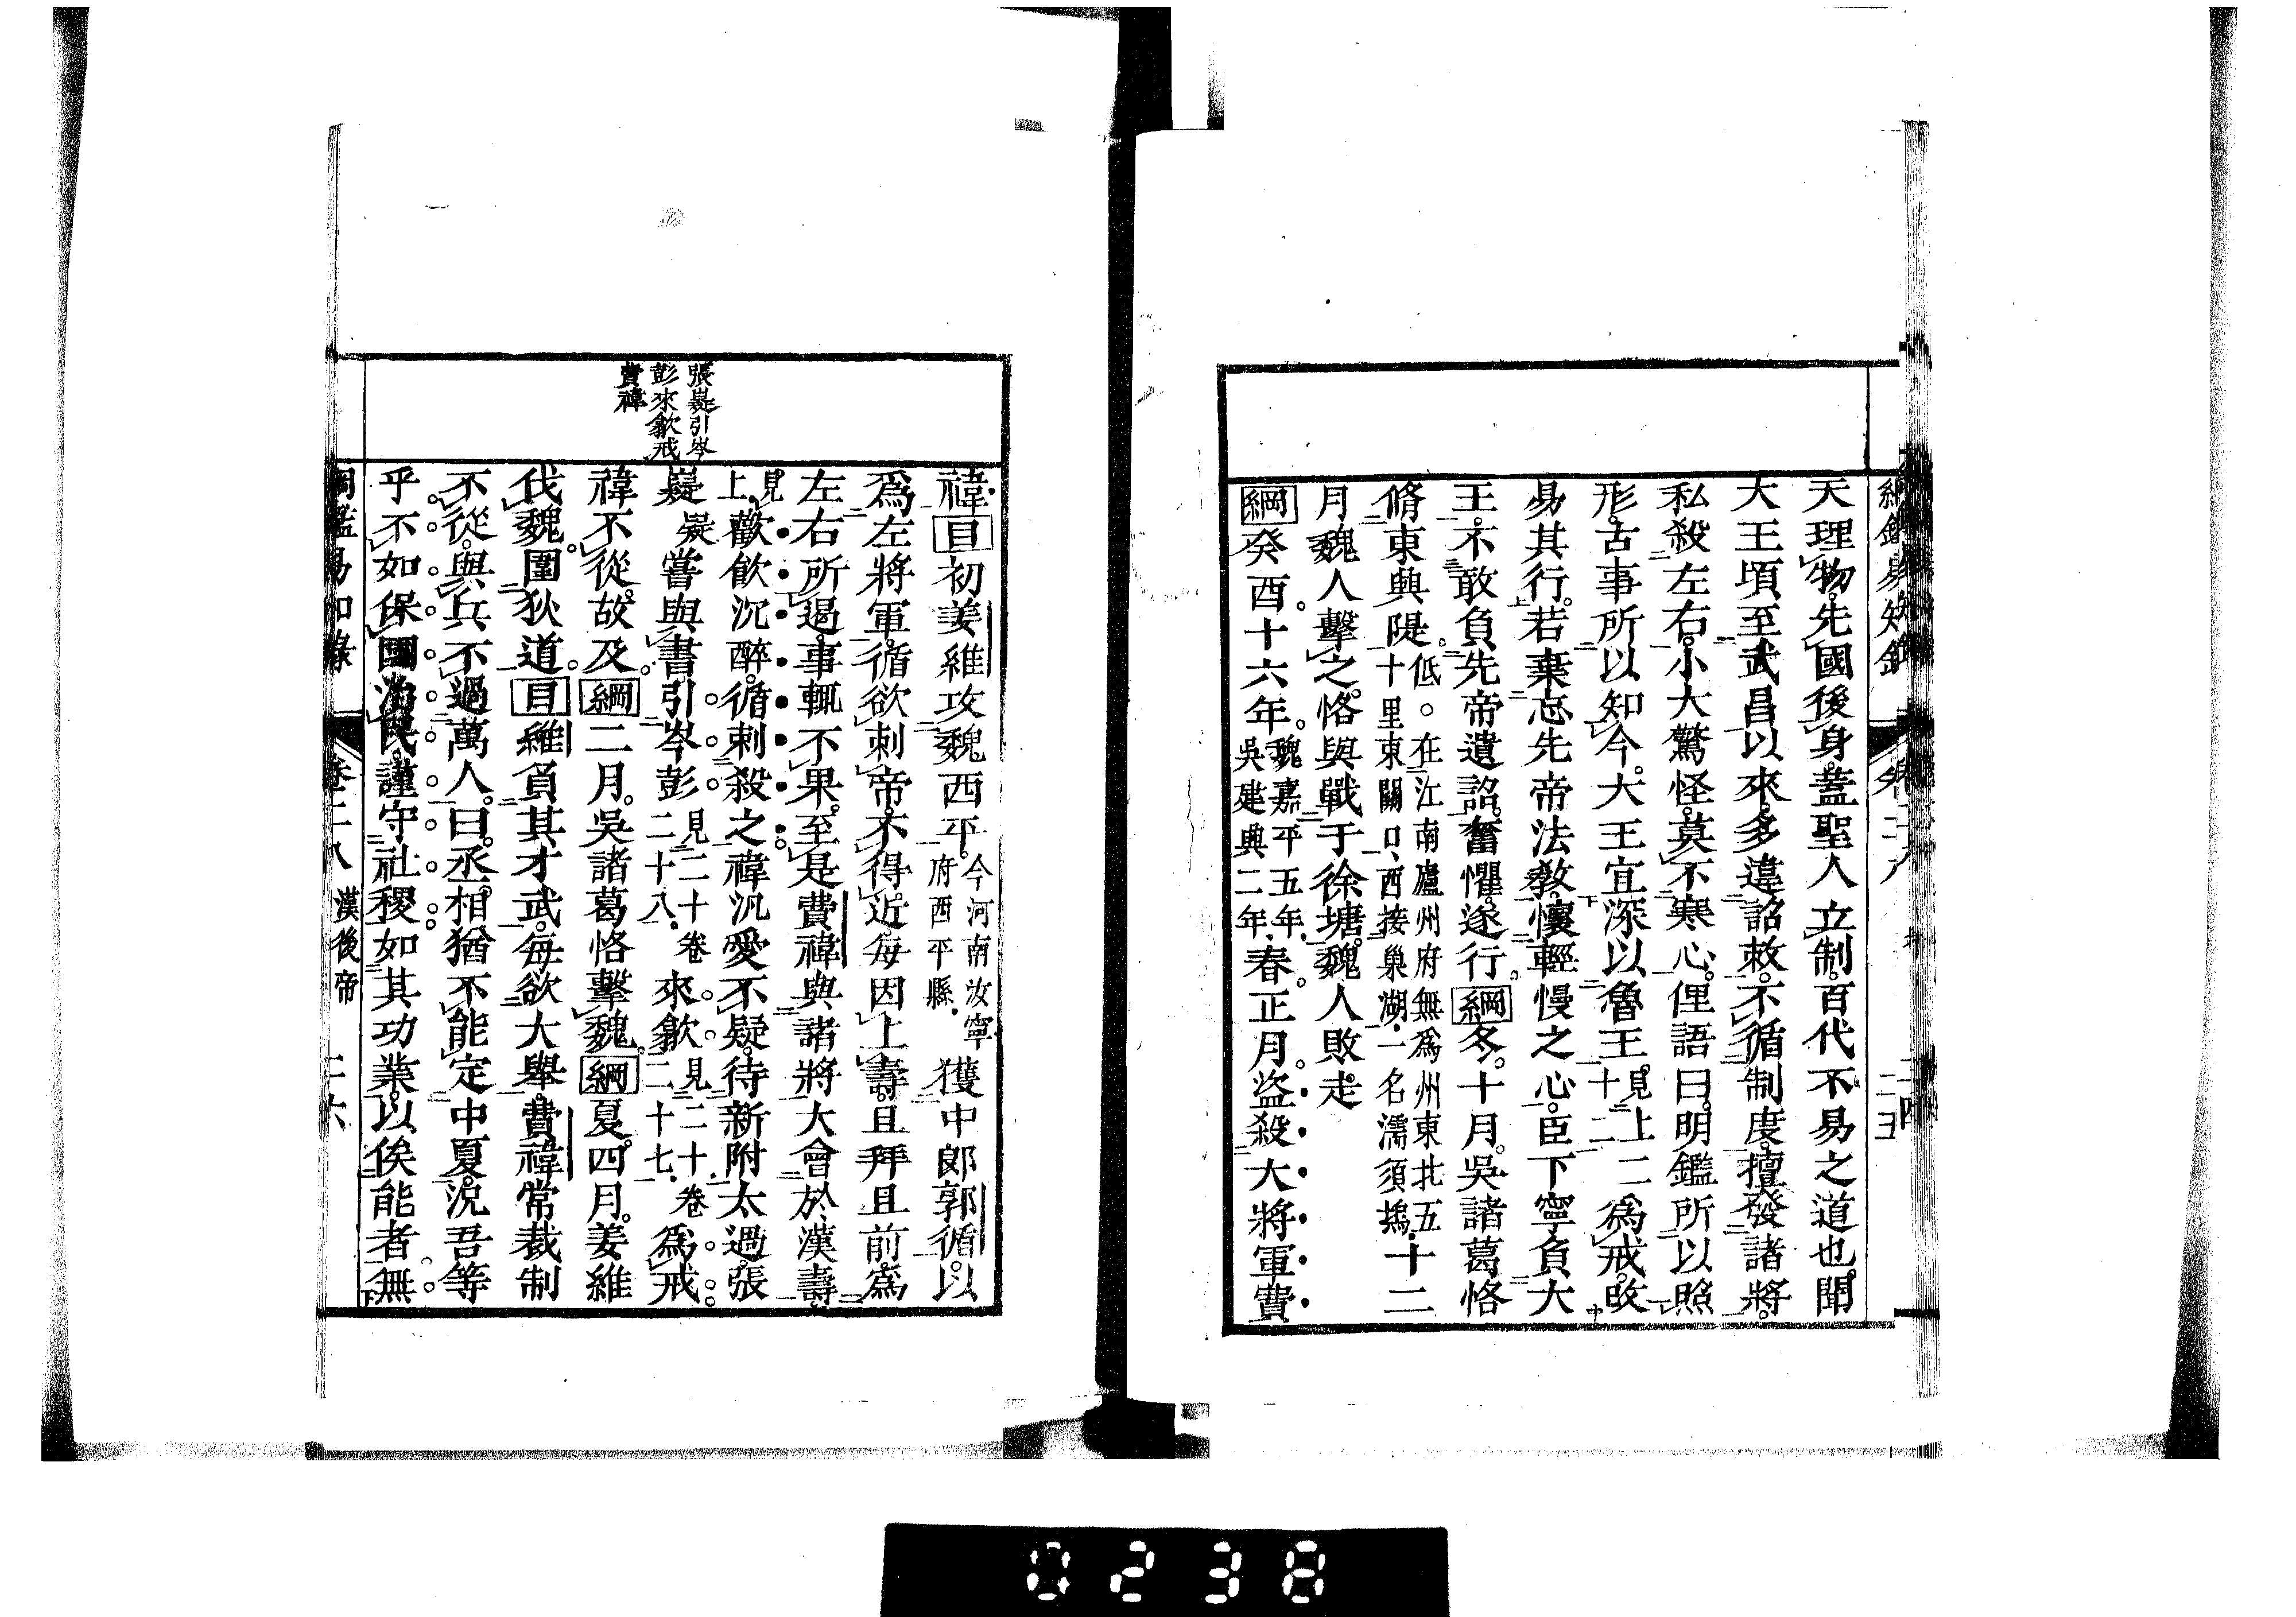 天理物。先國後身。蓋聖人立制。百代不易之道也。聞
大王頃至武昌以來。多違詔敕。不循制度。擅發諸將。
私殺左右。小大驚怪。莫不寒心。俚語曰。明鑑所以照
形。古事所以知今。大王宜深以魯王。見上二十二為戒。改
易其行。若棄忘先帝法教。懷輕慢之心。臣下寧負大
王。不敢負先帝遺詔。奮懼。遂行。綱冬。十月。吳諸葛恪
脩東興隄。低。○在江南廬州府無爲州東北五十里東關口、西接巢湖、一名濡須塢。十二
月魏人擊之。恪與戰于徐塘。魏人敗走。
綱癸酉。十六年。魏嘉平五年、吳建興二年。春。正月。盜殺大將軍費
張嶷引岑
彭來歙戒
費禕
禕。目初姜維攻魏西平。今河南汝寧府西平縣。獲中郎郭循。以
爲左將軍。循欲刺帝。不得。近每因上壽。且拜且前。爲
左右所遏。事輒不果。至是費禕與諸將大會於漢壽。
見上。歡飲沉醉。循刺殺之。禕汎愛不疑。待新附太過。張
嶷嶷嘗與書。引岑彭見二十卷二十八。來歙見二十卷二十七。爲戒
禕不從。故及。綱二月。吳諸葛恪擊魏。綱夏。四月。姜維
伐魏。圍狄道。目維負其才武。每欲大舉。費禕常裁制
不從。與兵不過萬人。曰。丞相猶不能定中夏。況吾等
乎。不如保國治民。謹守社稷。如其功業。以俟能者。無
綱鑑易知錄 卷二十八 漢後帝 二六
0238